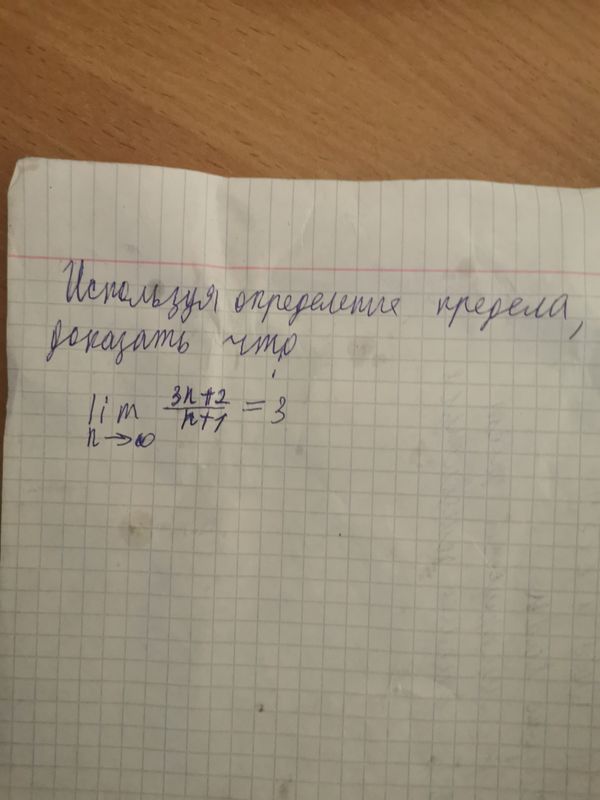 Используя определение предела,
доказать что
lim 3n+2/n+1 = 3
n→∞